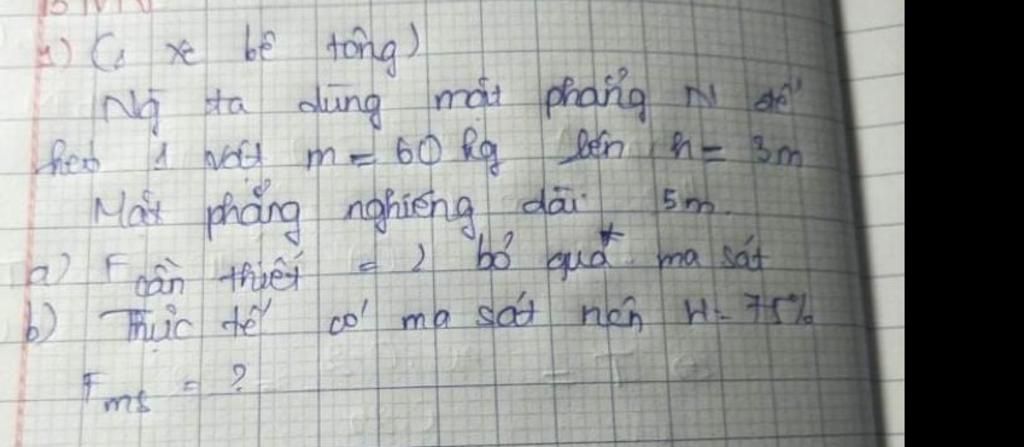 (1 xe bê tông)
Ng ta dùng mặt phẳng N để
kéo 1 vật m = 60 kg lên h = 3m
Mặt phẳng nghiêng dài 5m.
a) F cần thiết = ? bỏ qua ma sát
b) Thực tế có ma sát nên H = 75%
Fms = ?